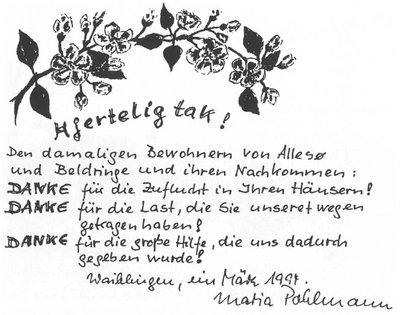 Hjertelig tak!
Den damaligen Bewohnern von Allesø
und Beldringe und ihren Nachkommen:
DANKE für die Zuflucht in Ihren Häusern!
DANKE für die Last, die Sie unseretwegen
getragen haben!
DANKE für die große Hilfe, die uns dadurch
gegeben wurde!
Waiblingen, im März 1991.
Maria Pohlmann